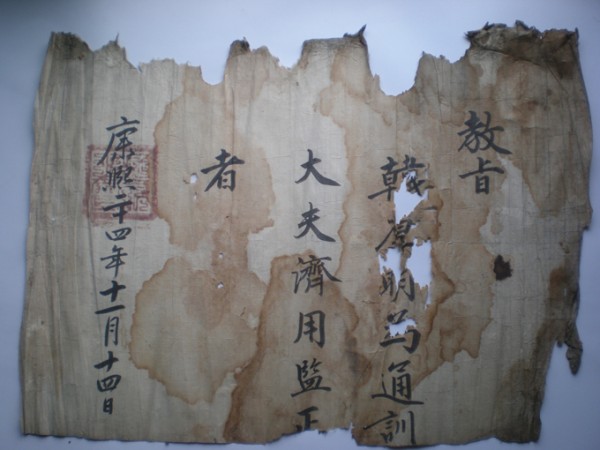 敎旨
韓明爲通訓
大夫濟用監正
者
康熙二十四年十一月十四日